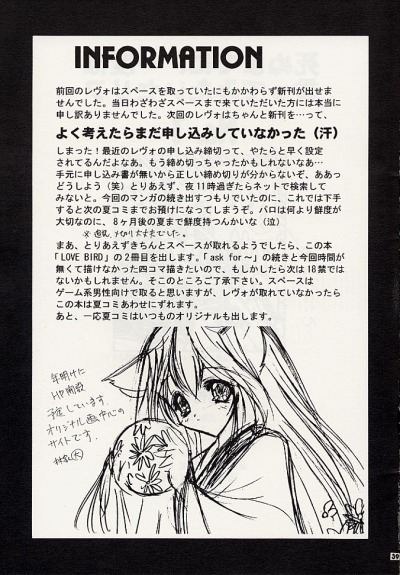 INFORMATION
前回のレヴォはスペースを取っていたにもかかわらず新刊が出せ
ませんでした。当日わざわざスペースまで来ていただいた方には本当に
申し訳ありませんでした。次回のレヴォはちゃんと新刊を…って、
よく考えたらまだ申し込みしていなかった（汗）
しまった！最近のレヴォの申し込み締切って、やたらと早く設定
されてるんだよなあ。もう締め切っちゃったかもしれないなあ…
手元に申し込み書が無いから正しい締め切りが分からないぞ、ああっ
どうしよう（笑）とりあえず、夜１１時過ぎたらネットで検索して
みないと。今回のマンガの続き出すつもりでいたのに、これでは下手
すると次の夏コミまでお預けになってしまうぞ。パロは何より鮮度が
大切なのに、８ヶ月後の夏まで鮮度持つんかいな（泣）
まあ、とりあえずきちんとスペースが取れるようでしたら、この本
「LOVE BIRD」の２冊目を出します。「ask for～」の続きと今回時間が
無くて描けなかった四コマ描きたいので、もしかしたら次は１８禁では
ないかもしれません。そこのところご了承下さい。スペースは
ゲーム系男性向けで取ると思いますが、レヴォが取れていなかったら
この本は夏コミあわせにずれます。
あと、一応夏コミはいつものオリジナルも出します。
年明けに
HP開設
予定しています
オリジナル画中心の
サイトです.
39